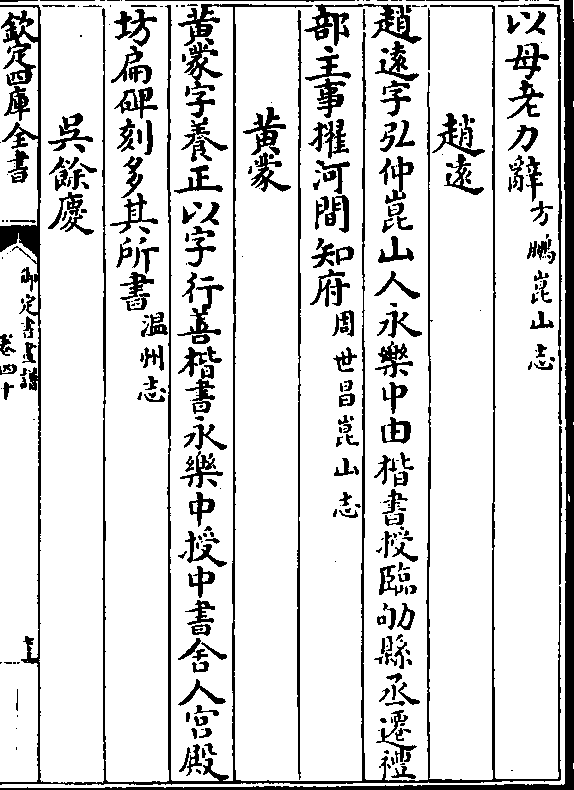 以母老力辭方鵬崑山志
趙遠
趙遠字弘仲崑山人永樂中由楷書授臨朐縣丞遷禮
部主事擢河間知府周世昌崑山志
黄蒙
黄蒙字養正以字行善楷書永樂中授中書舍人宫殿
坊扁碑刻多其所書温州志
吳餘慶
欽定四庫全書
御定書畫譜
卷四十